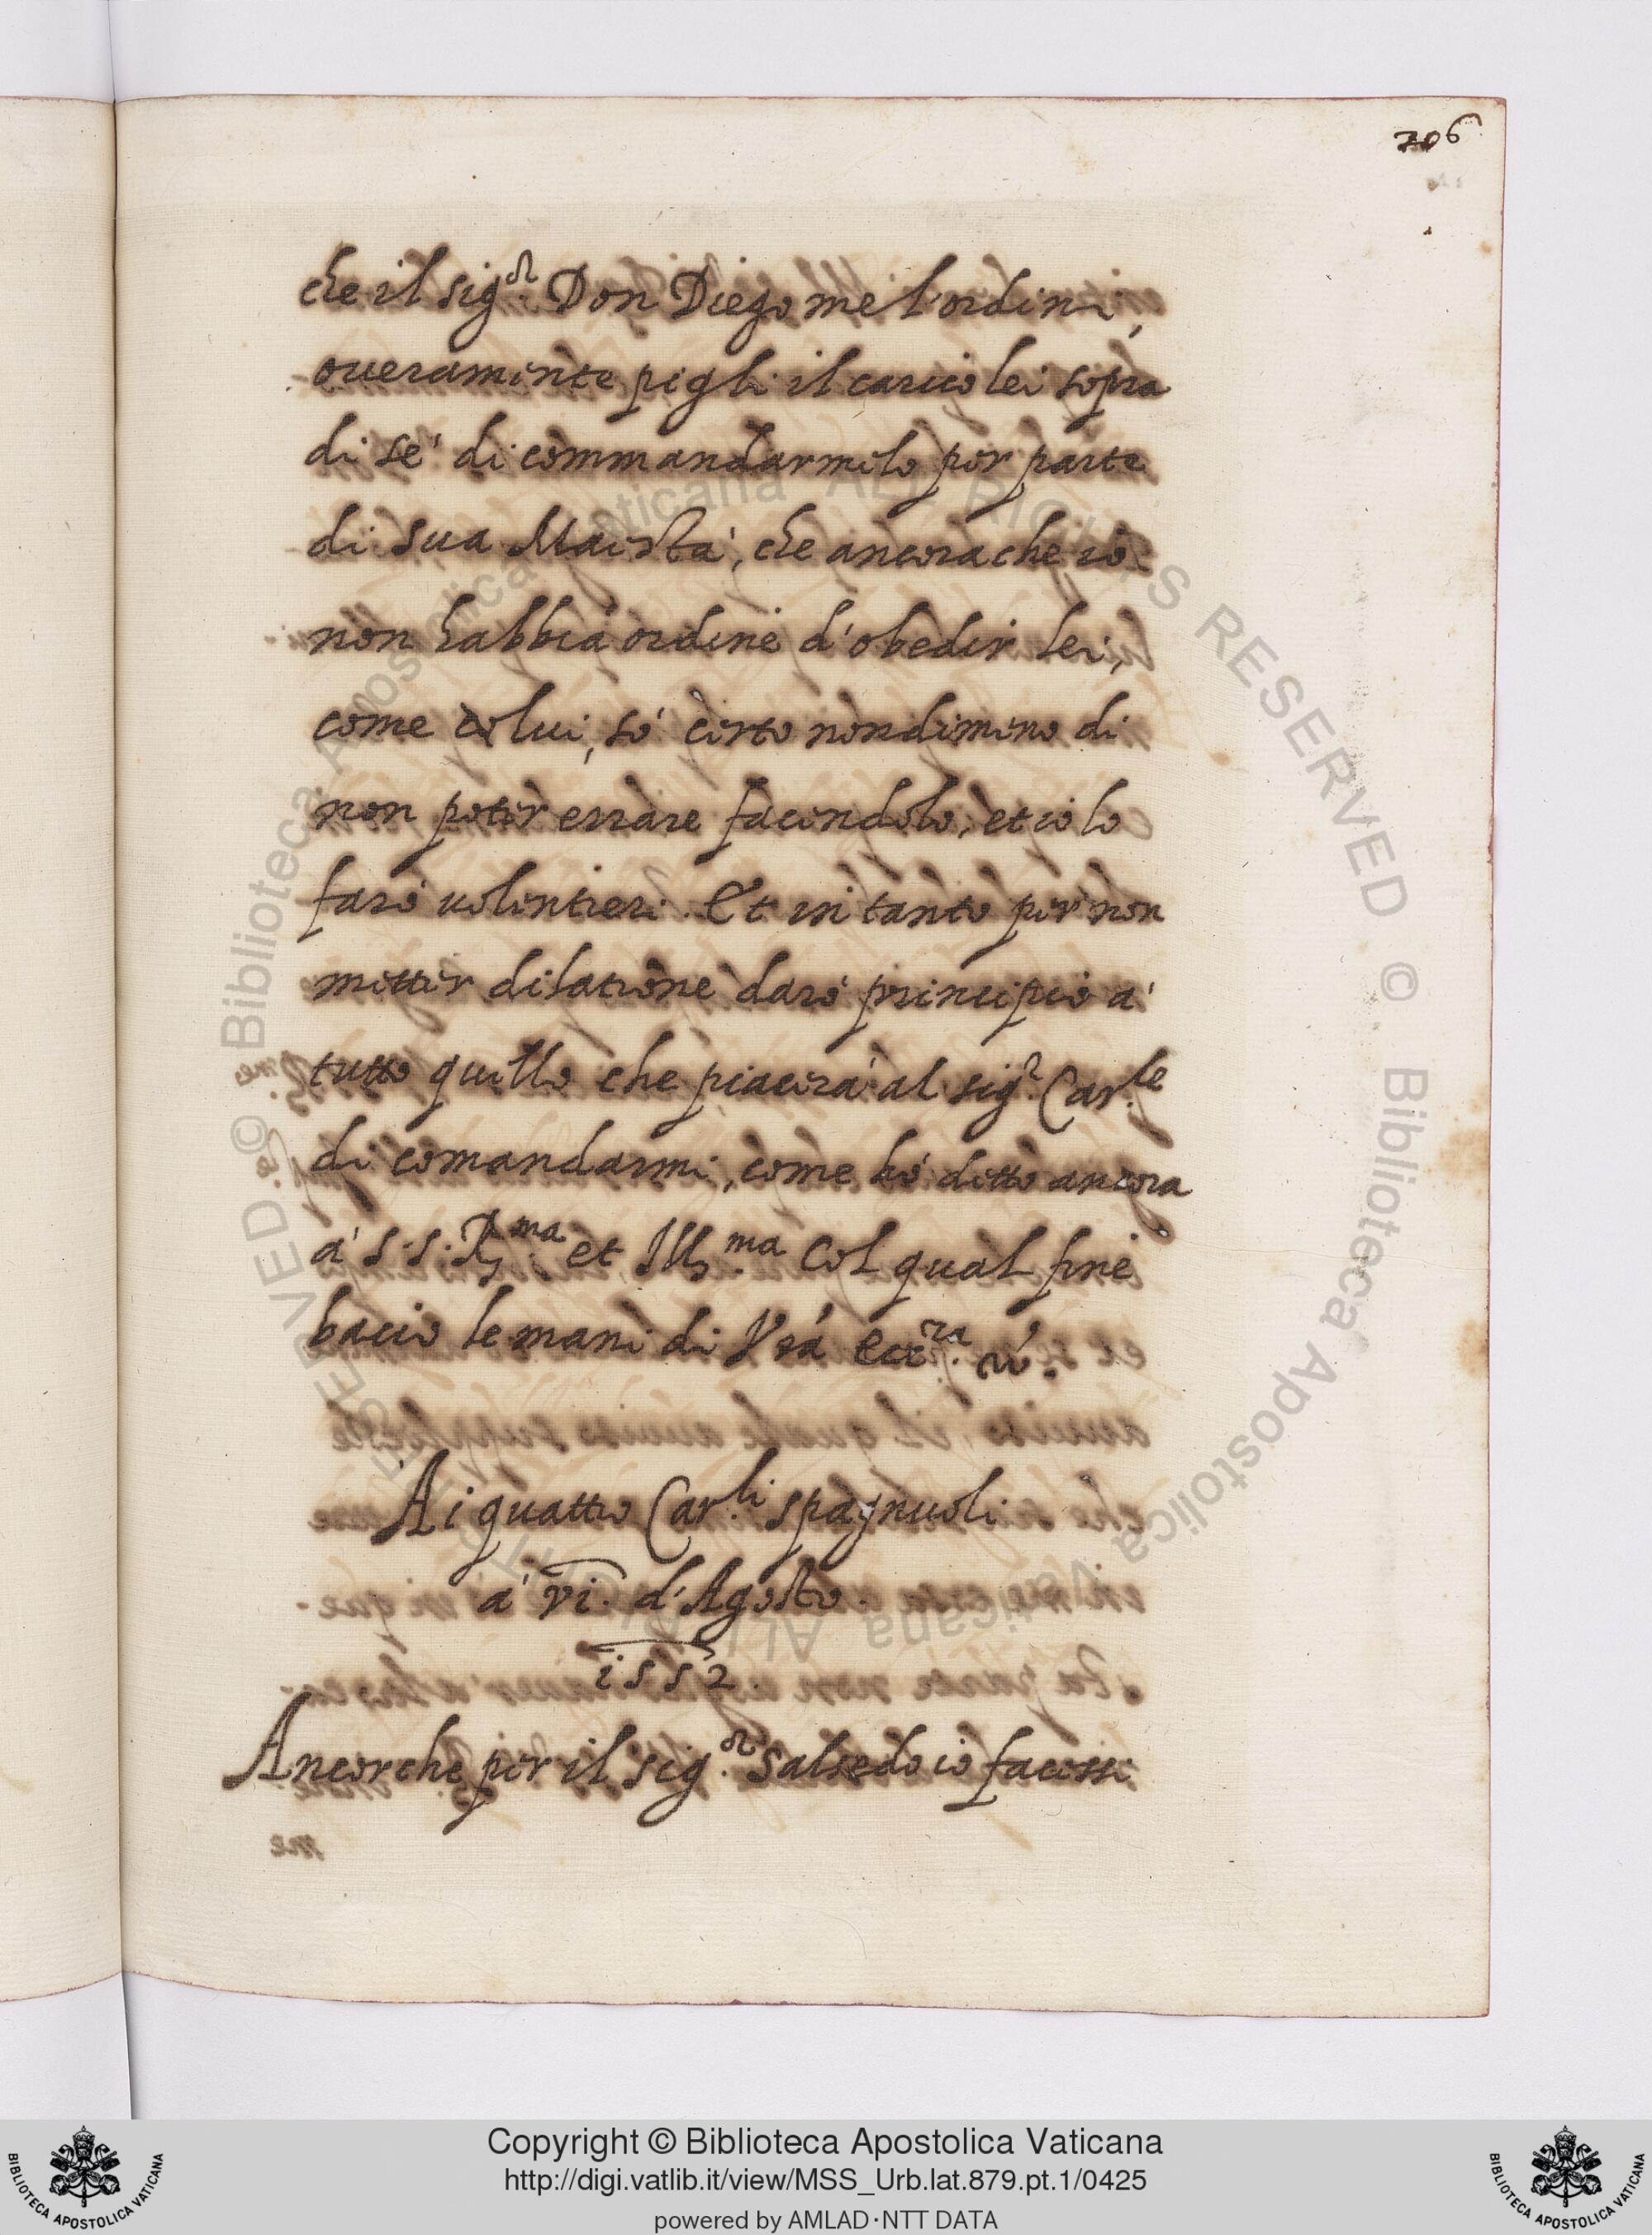 206
che il sig.r Don Diego me l'ordini,
oueramente pigli il carico lei sopra
di sé di commandarmelo per parte
di sua Maestà, che ancora che io
non habbia ordine d'obedir lei,
come lui, só certo nondimeno di
non poter errare facendolo, et io lo
faró uolentieri. Et in tanto per non
metter dilatione daró principio á
tutto quello che piacerá al sig.r Car.le
di comandarmi, come hó detto ancora
á s. s. R.ma et Ill.ma Col qual fine
bacio le mani di Vrá ecc.za
Ai quattro Car.li spagnuoli
á vi. d'Agosto.
i552.
Ancor che per il sig.or Salsedo io facessi
© Biblioteca Apostolica Vaticana ALL RIGHTS RESERVED © Biblioteca Apostolica Vaticana ALL RIGHTS RESERVED
Copyright © Biblioteca Apostolica Vaticana
http://digi.vatlib.it/view/MSS_Urb.lat.879.pt.1/0425
powered by AMLAD·NTT DATA
BIBLIOTECA APOSTOLICA VATICANA
BIBLIOTECA APOSTOLICA VATICANA